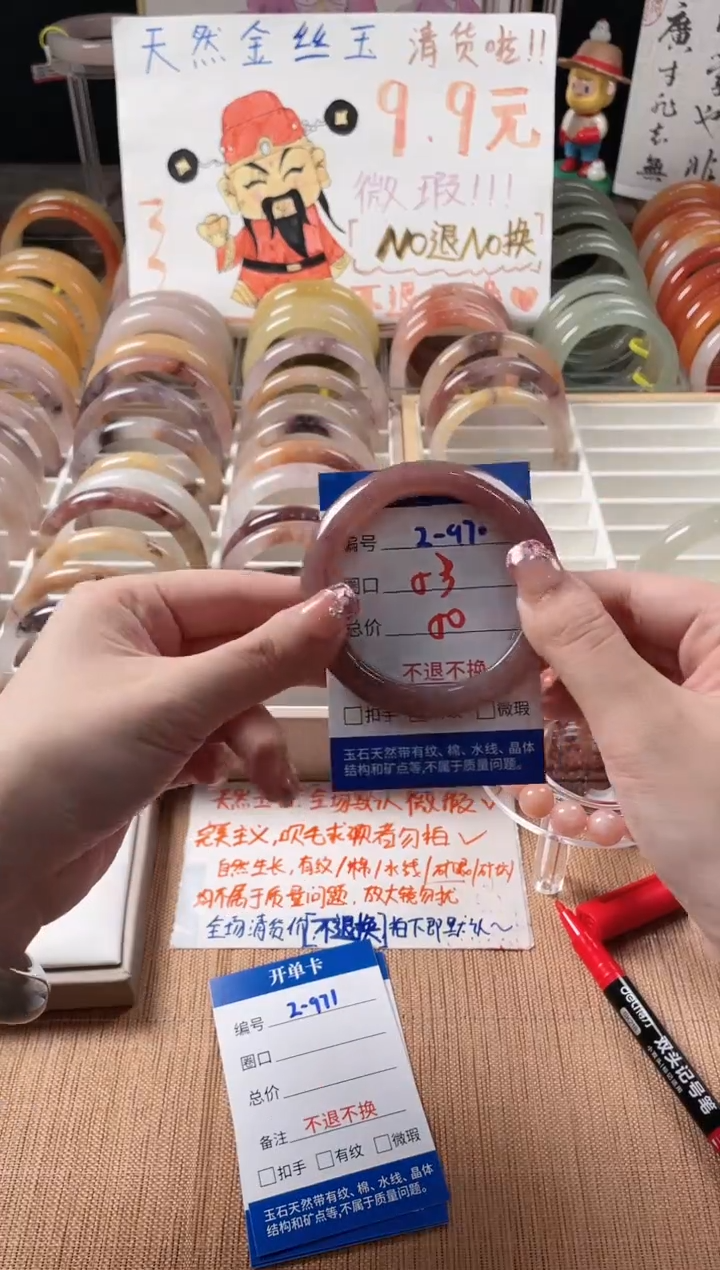 天然金丝玉 清货啦!!
9.9元
微瑕!!!
NO退NO换
编号 2-970
圈口
总价
不退不换
扣手 微瑕
玉石天然带有纹、棉、水线、晶体
结构和矿点等,不属于质量问题。
完美主义,吹毛求疵者勿拍✓
自然生长,有纹/棉/水线/
均不属于质量问题,放大镜勿扰
全场清货价[不退换]拍下即默认~
开单卡
编号 2-971
圈口
总价
备注 不退不换
扣手 有纹 微瑕
玉石天然带有纹、棉、水线、晶体
结构和矿点等,不属于质量问题。
双头记号笔